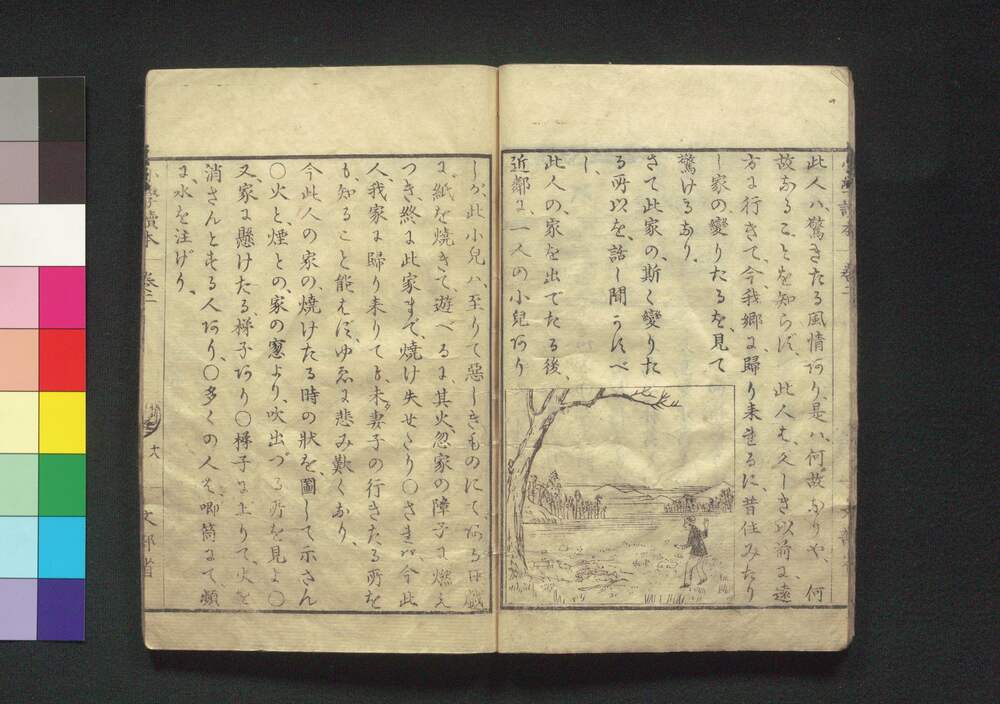 此人ハ、驚きたる風情あり、是ハ、何故なりや、何
故なることを知らば、此人も、久しき以前に、遠
方に行きて、今我郷に歸り來るに、昔住みたり
し家の變りたるを、見て
驚けるなり、
さて此家の、斯く變りた
る所以を、話し聞かすべ
し、
此人の、家を出でたる後、
近鄰に、一人の小兒あり
しが、此小兒ハ、至りて惡しきものにて、ある日戲
に、紙を燒きて、遊べるに、其火、忽家の障子に、燃え
つき、終に此家まで、燒け失せたり○されば、今此
人、我家に歸り來りても、未妻子の行きたる所を
も、知ること能はず、ゆゑに悲み歎くなり、
今此人の家の、燒けたる時の狀を、圖して示さん
○火と、煙との、家の窻より、吹出づる所を見よ○
又、家に懸けたる、梯子あり○梯子に上りて、火を
消さんとする人あり、○多くの人は、喞筒にて、頻
に、水を注げり、
小學讀本 卷二
十八
文部省